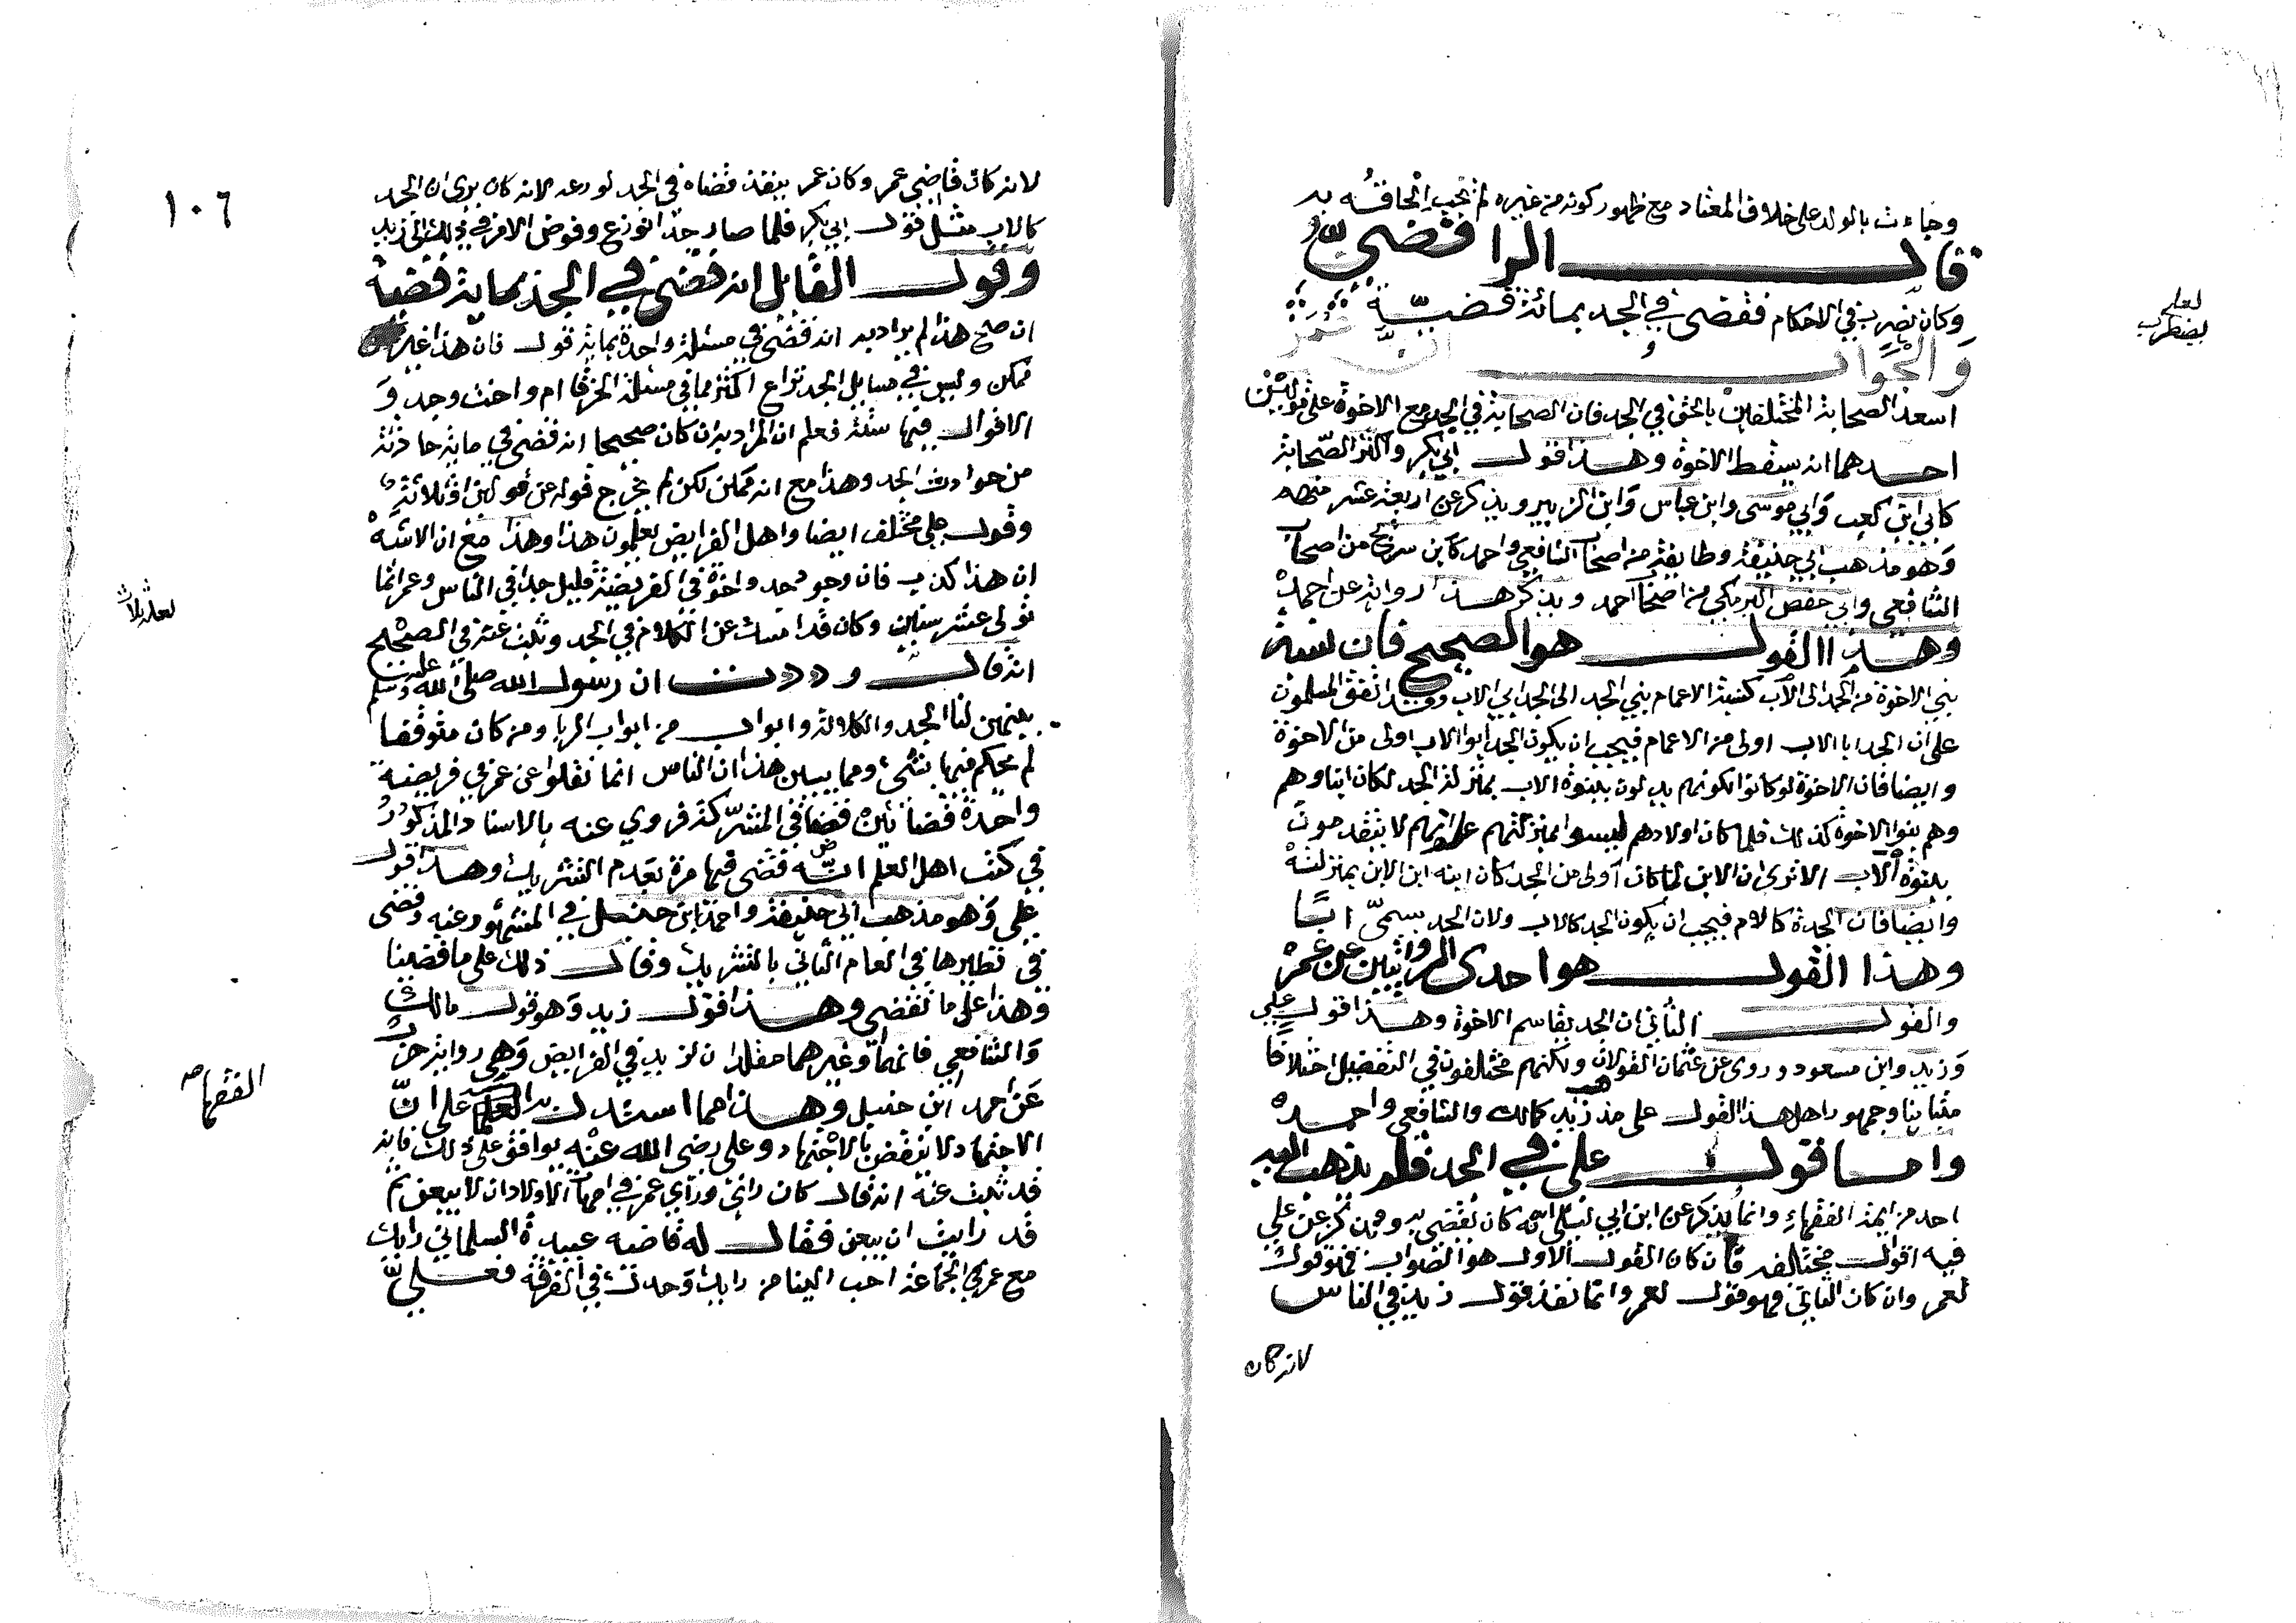 وجاءت بالولد على خلاف المعتاد مع ظهور كونه من غيره لم يجب الحاقه به
قال الرافضي
وكان يضرب في الاحكام فقضى في الجد بمائة قضية
والجواب ان عمر
اسعد الصحابة المختلفين بالحق في الجد فان الصحابة في الجد مع الاخوة على قولين
احدهما انه يسقط الاخوة وهذا قول ابي بكر واكثر الصحابة
كابي ابن كعب وابي موسى وابن عباس وابن الزبير ويذكر عن اربعة عشر منهم
وهو مذهب ابي حنيفة وطايفة من اصحاب الشافعي واحمد كابن سريج من اصحاب
الشافعي وابي حفص البرمكي من اصحاب احمد ويذكر هذا رواية عن احمد
وهذا القول هو الصحيح فان نسبة
بني الاخوة من الجد الى الاب كنسبة الاعمام بني الجد الى الجد ابي الاب وقد اتفق المسلمون
على ان الجد ابا الاب اولى من الاعمام فيجب ان يكون الجد ابوا الاب اولى من الاخوة
وايضا فان الاخوة لو كانوا لكونهم يدلون ببنوة الاب بمنزلة الجد لكان ابناوهم
وهم بنوا الاخوة كذلك فلما كان اولادهم ليسوا بمنزلتهم علم انهم لا يتقدمون
ببنوة الاب الا ترى ان الابن لما كان اولى من الجد كان ابنه ابن الابن بمنزلته
وايضا فان الجدة كالام فيجب ان يكون الجد كالاب ولان الجد يسمى ابا
وهذا القول هو احدى الروايتين عن عمر
والقول الثاني ان الجد يقاسم الاخوة وهذا قول علي
وزيد وابن مسعود وروى عن عثمان القولان ولكنهم مختلفون في التفصيل اختلافا
متباينا وجمهور اهل هذا القول على مذهب زيد كمالك والشافعي واحمد
واما قول علي في الجد فلم يذهب اليه
احد من ايمة الفقهاء وانما يذكر عن ابن ابي ليلى انه كان يقضي به ويذكر عن علي
فيه اقوال مختلفه فان كان القول الاول هو الصواب فهو قول
لعمر وان كان الثاني فهو قول لعمر وانما نفذ قول زيد في الناس
لانه كان
لعله
يضطرب
١٠٦
لانه كان قاضي عمر وكان عمر ينفذ قضاه في الجد لورعه لانه كان يرى ان الجد
كالاب مثل قول ابي بكر فلما صار جدا تورع وفوض الامر في ذلك الى زيد
وقول القايل انه قضى في الجد بماية قضية
ان صح هذا لم يراد به انه قضى في مسئلة واحدة بماية قول فان هذا غير
ممكن وليس في مسايل الجد نزاع اكثر مما في مسئلة الخرقا ام واخت وجد و
الاقوال فيها ستة فعلم ان المراد به ان كان صحيحا انه قضى في ماية حادثة
من حوادث الجد وهذا مع انه ممكن لكن لم يخرج قوله عن قولين او ثلاثة
وقول علي مختلف ايضا واهل الفرايض يعلمون هذا وهذا مع ان الاشبه
ان هذا كذب فان وجود جد واخوة في الفريضة قليل جدا في الناس وعمر انما
تولى عشر سنين وكان قد امسك عن الكلام في الجد وثبت عنه في الصحيح
انه قال وددت ان رسول الله صلى الله عليه وسلم
بينهن لنا الجد والكلالة وابواب من ابواب الربا ومن كان متوقفا
لم يحكم فيها بشيء ومما يبين هذا ان الناس انما نقلوا عن عمر في فريضة
واحدة قضائين قضا في المشركة فروي عنه بالاسناد المذكور
في كتب اهل العلم انه قضى فيها مرة بعدم التشريك وهذا قول
علي وهو مذهب ابي حنيفة واحمد ابن حنبل في المشهور عنه وقضى
في نظيرها في العام الثاني بالتشريك وقال ذلك على ما قضينا
وهذا على ما نقضي وهذا قول زيد وهو قول مالك
والشافعي فانهما وغيرهما مقلدان لزيد في الفرايض وهي رواية حرب
عن احمد ابن حنبل وهذا مما استدل به العلما على ان
الاجتهاد لا ينقض بالاجتهاد وعلي رضي الله عنه يوافق على ذلك فانه
قد ثبت عنه انه قال كان رائي ورأي عمر في امهات الاولاد ان لا يبعن ثم
قد رايت ان يبعن فقال له قاضيه عبيدة السلماني رايك
مع عمر في الجماعة احب الينا من رايك وحدك في الفرقة فعلي
لعله ثلاث
الفقها صح